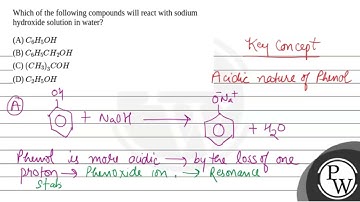 Which of the following compounds will react with sodium
hydroxide solution in water?
(A) C₆H₅OH
(B) C₆H₅CH₂OH
(C) (CH₃)₃COH
(D) C₂H₅OH
Key Concept
Acidic nature of Phenol
(A)
OH
+ NaOH ⟶
O⁻Na⁺
+ H₂O
Phenol is more acidic → by the loss of one
proton → Phenoxide ion. → Resonance
Stab
PW